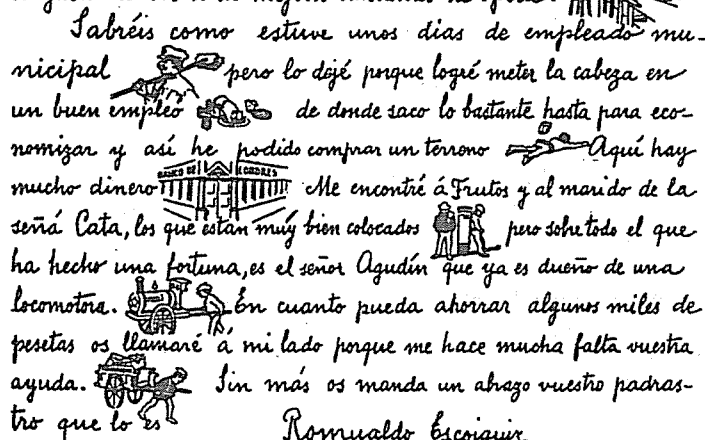 Sabréis como estuve unos dias de empleado mu-
nicipal pero lo dejé porque logré meter la cabeza en
un buen empleo de donde saco lo bastante hasta para eco-
nomizar y así he podido comprar un terrono Aquí hay
mucho dinero BANCO DE LONDRES Me encontré á Frutos y al marido de la
señá Cata, los que están muy bien colocados pero sobre todo el que
ha hecho una fortuna, es el señor Agudín que ya es dueño de una
locomotora. En cuanto pueda ahorrar algunos miles de
pesetas os llamaré á mi lado porque me hace mucha falta vuestra
ayuda. Sin más os manda un abrazo vuestro padras-
tro que lo es
Romualdo